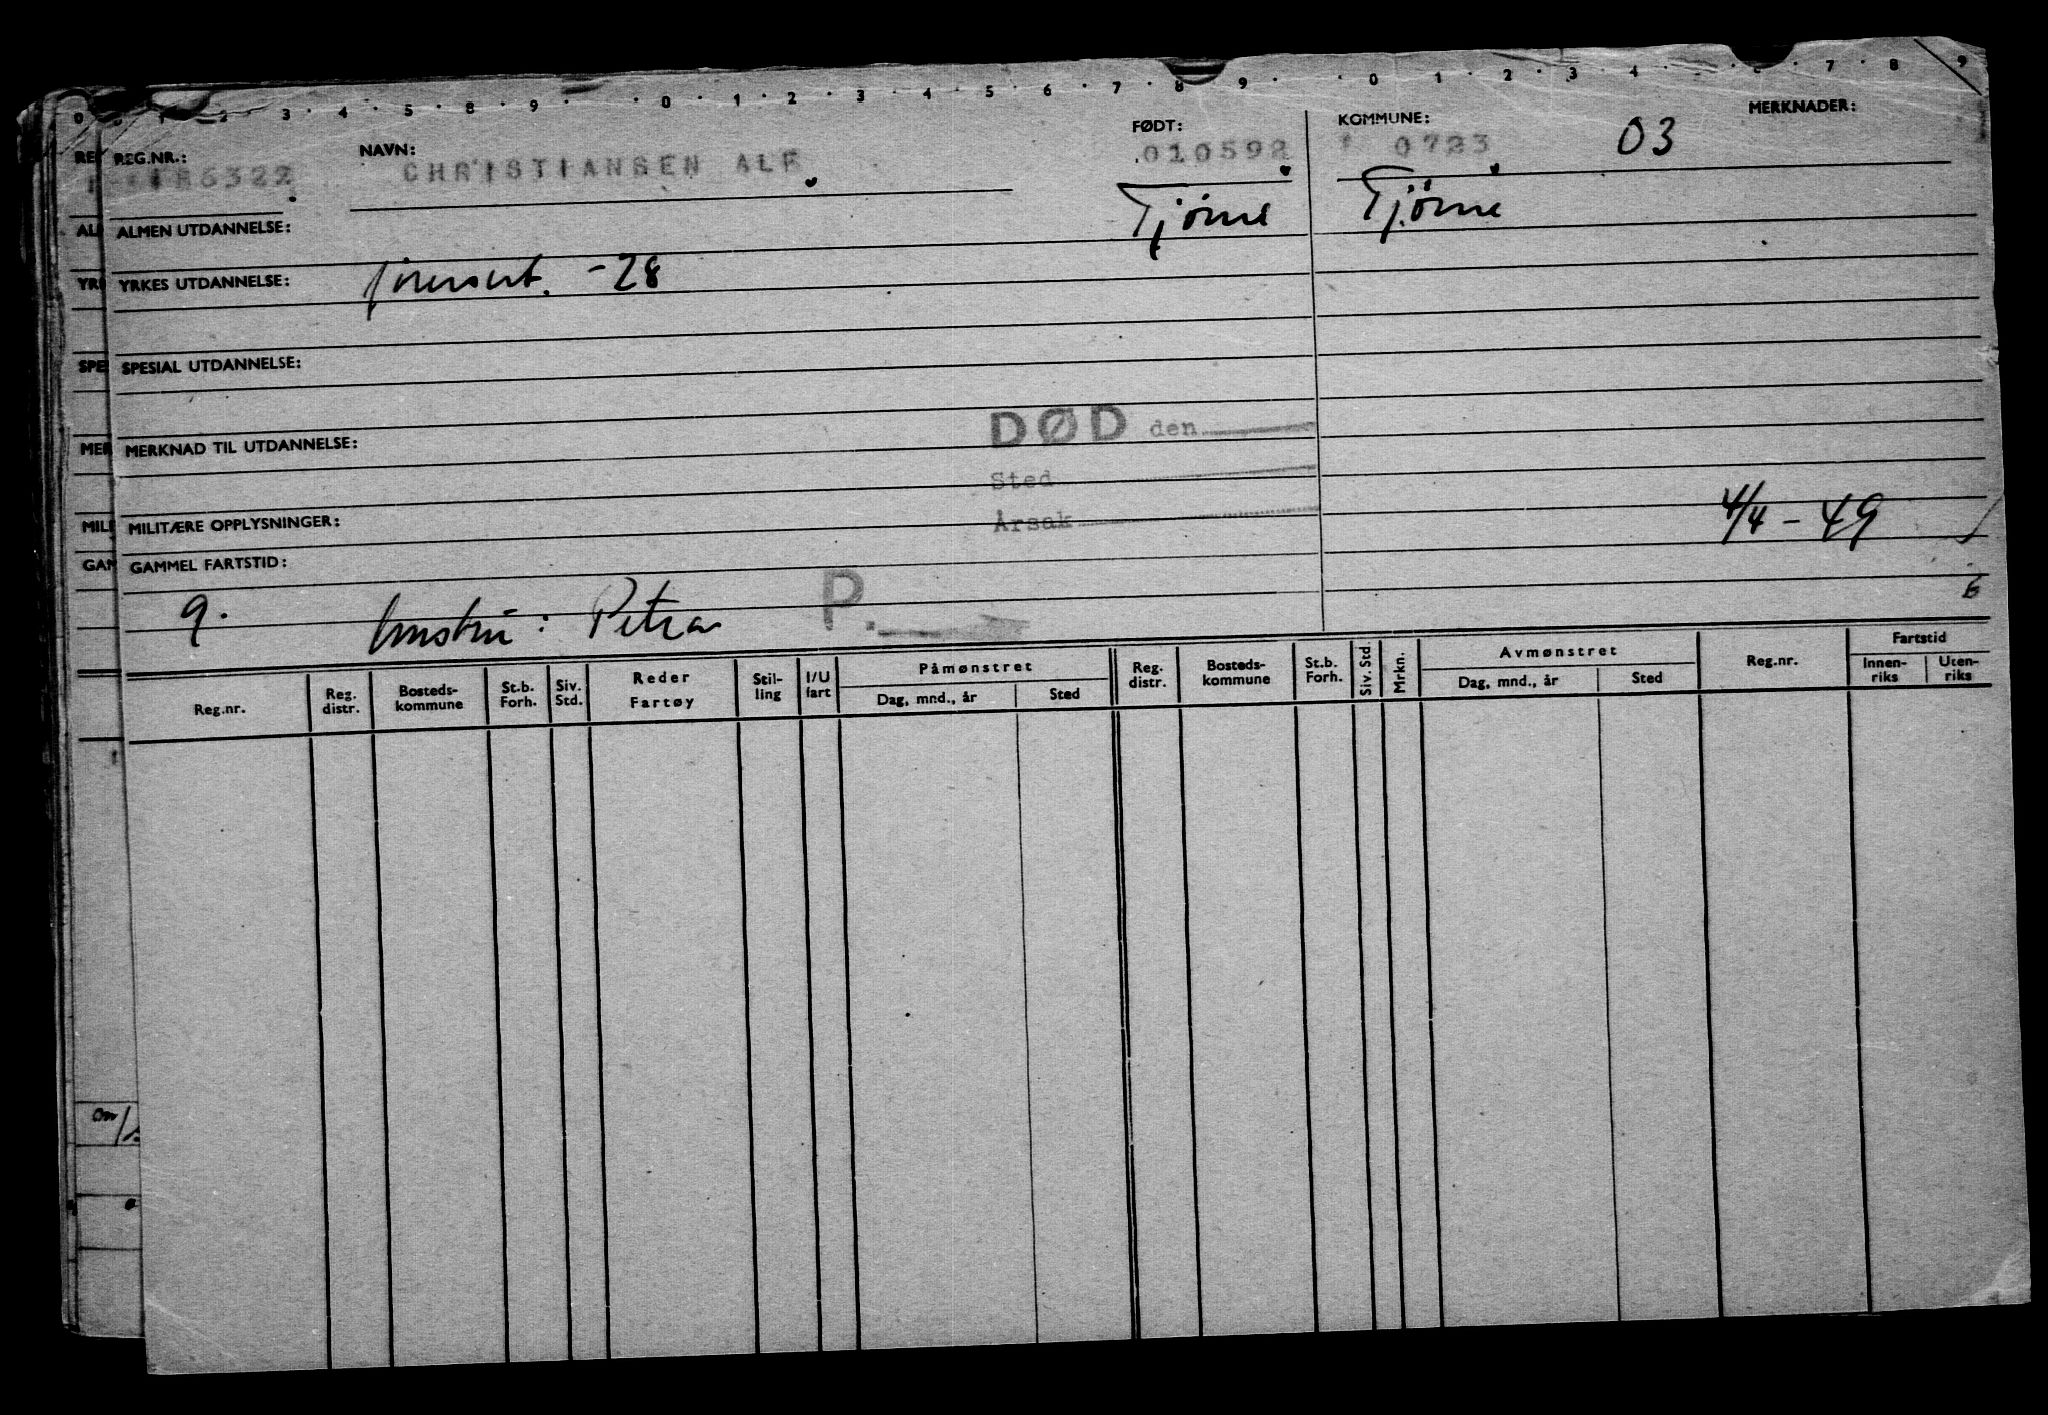 0 1 2 3 4 5 8 9 0 1 2 3 4 5 6 7 8 9 0 1 2 3 4 6 7 8 9
REG.NR.: NAVN: FØDT: KOMMUNE: MERKNADER:
6322 CHRISTIANSEN ALF 010592 0723 03
Tjøme Tjøme
ALMEN UTDANNELSE:
YRKES UTDANNELSE: førersert. -28
SPESIAL UTDANNELSE:
DØD den
MERKNAD TIL UTDANNELSE:
Sted
MILITÆRE OPPLYSNINGER: Årsak 4/4 - 49
GAMMEL FARTSTID:
g. hustru: Petra P. 6
Reg.nr. Reg. distr. Bosteds-kommune St.b. Forh. Siv. Std. Reder Fartøy Stil-ling I/U fart Påmønstret Dag, mnd., år Sted Reg. distr. Bosteds-kommune St.b. Forh. Siv. Std. Mrkn. Avmønstret Dag, mnd., år Sted Reg.nr. Fartstid Innen-riks Uten-riks